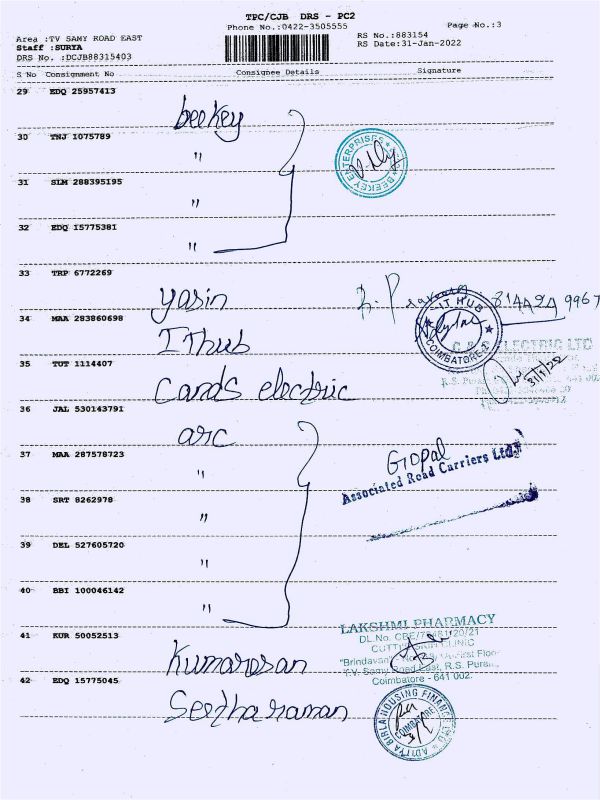 TPC/CJB DRS - PC2
Phone No.:0422-3505555
Page No.:3
Area :TV SAMY ROAD EAST
RS No.:883154
Staff :SURYA
RS Date:31-Jan-2022
DRS No. :DCJB88315403
S No Consignment No Consignee Details Signature
29 EDQ 25957413
beekey
30 TNJ 1075789
"
BEEKEY ENTERPRISES
31 SLM 288395195
"
32 EDQ 15775381
"
33 TRP 6772269
yasin
34 MAA 283860698
IT HUB
COIMBATORE
IThub
C & S ELECTRIC LTD
35 TUT 1114407
31/1/22
Cands electric
36 JAL 530143791
arc
37 MAA 287578723
Gopal
Associated Road Carriers Ltd.
"
38 SRT 8262978
"
39 DEL 527605720
"
40 BBI 100046142
"
LAKSHMI PHARMACY
41 KUR 50052513
CLINIC
"Brindavan"
T.V. Samy Road East, R.S. Puram,
Coimbatore - 641 002.
Kumaresan
42 EDQ 15775045
ADITYA BIRLA HOUSING FINANCE LTD
COIMBATORE
Seetharaman